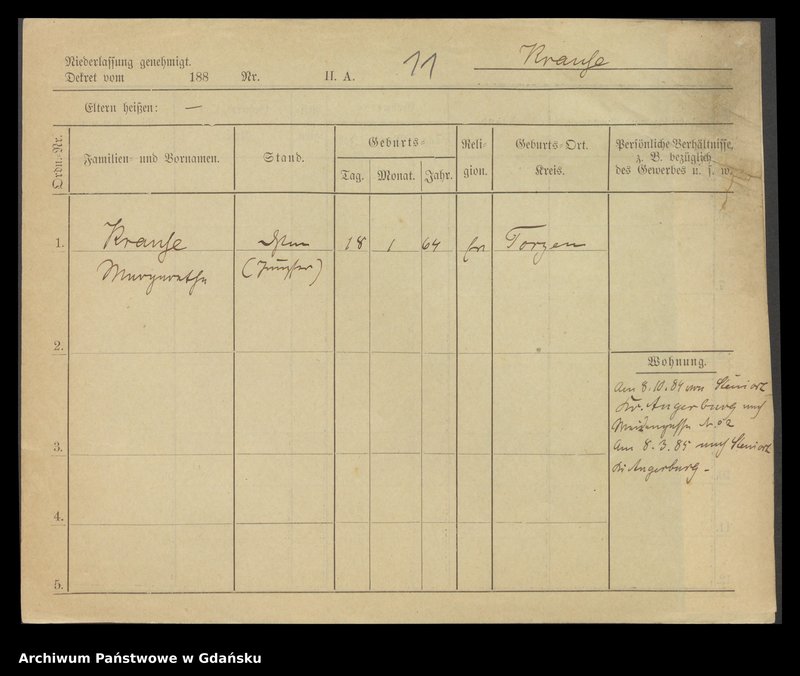 Niederlassung genehmigt.
Dekret vom 188 Nr. II. A. 11 Krause
Eltern heißen: —
Ordn.-Nr.
Familien- und Vornamen.
Stand.
Geburts-
Tag. Monat. Jahr.
Reli-
gion.
Geburts-Ort.
Kreis.
Persönliche Verhältnisse,
z. B. bezüglich
des Gewerbes u. s. w.
1. Krause 18 1 64 ev Torgen
Margarethe (Jungfer)
2.
Wohnung.
Am 8.10.84 von Steinort
Kr. Angerburg nach
No 2
3.
Am 8.3.85 nach Steinort
Kr Angerburg.
4.
5.
Archiwum Państwowe w Gdańsku